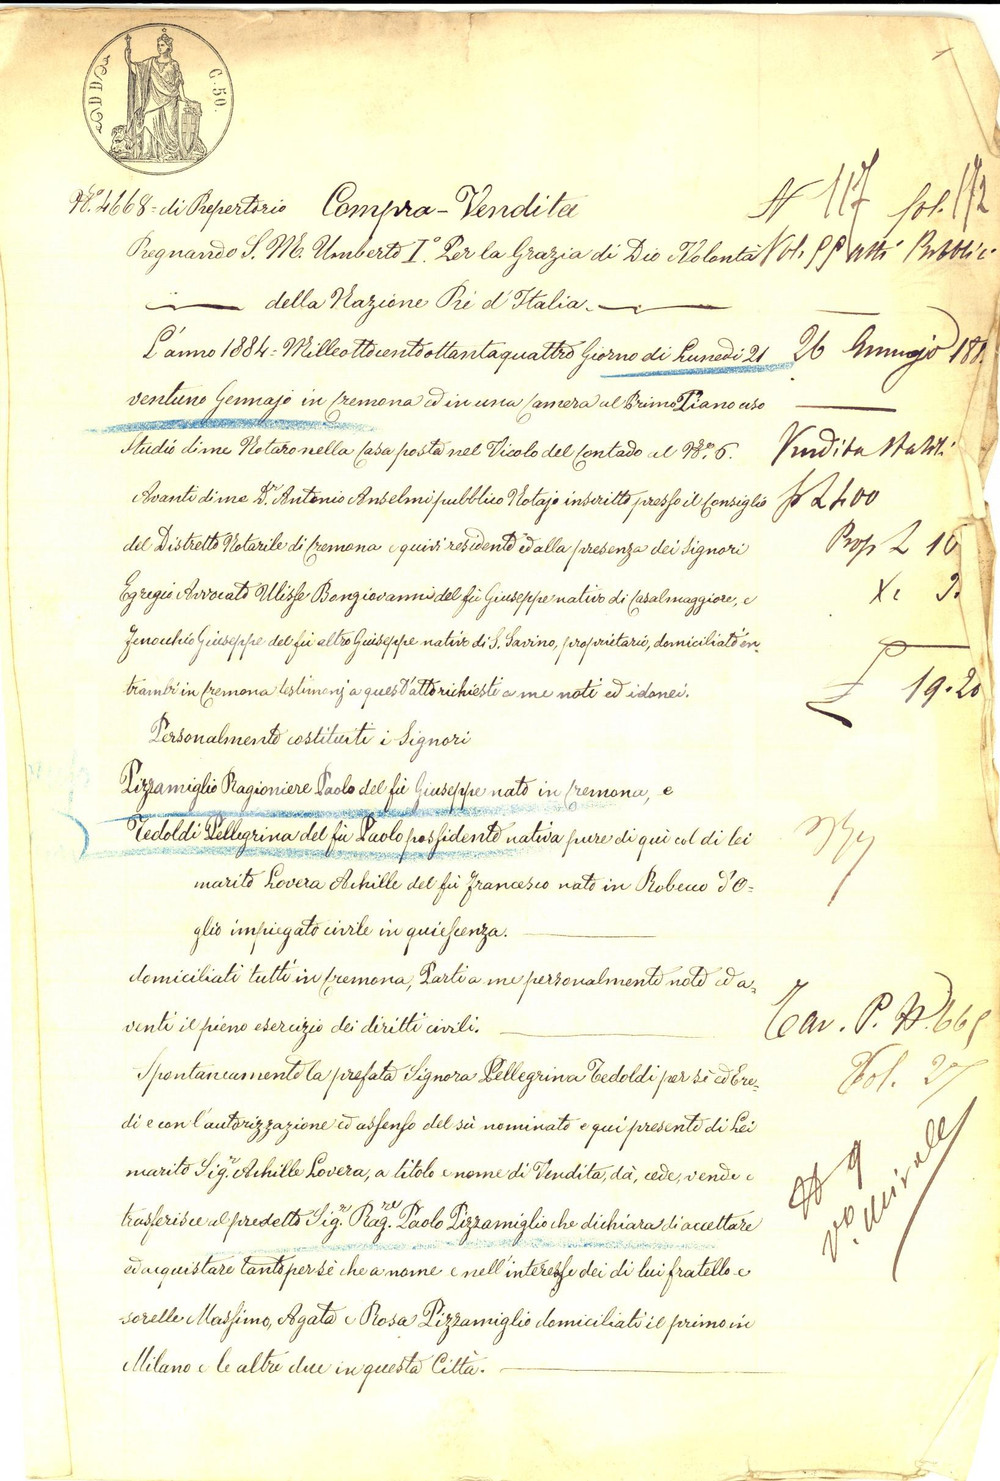 C. 50.
N.º 4668 = di Repertorio Compra-Vendita
N 117 fol. 172
Regnando S. M. Umberto Iº. Per la Grazia di Dio e Volontà
Vol. 99 Atti Pubblici
della Nazione Rè d'Italia.
L'anno 1884 = Milleottocentottantaquattro Giorno di Lunedì 21
26 Gennajo 188
ventuno Gennajo in Cremona ed in una Camera al Primo Piano uso
Studio di me Notaro nella Casa posta nel Vicolo del Contado al N.º 6.
Vendita Stabili
Avanti di me D.r Antonio Anselmi pubblico Notajo inscritto presso il Consiglio
p 2400
del Distretto Notarile di Cremona e quivi residente ed alla presenza dei Signori
Prop L 16
Egregio Avvocato Ulisse Bongiovanni del fù Giuseppe nativo di Casalmaggiore, e
Fenocchio Giuseppe del fù altro Giuseppe nativo di S. Savino, proprietario, domiciliati en-
trambi in Cremona testimonj a quest'atto richiesti a me noti ed idonei.
£ 19.20
Personalmente costituiti i Signori
Pizzamiglio Ragioniere Paolo del fù Giuseppe nato in Cremona, e
Tedoldi Pellegrina del fù Paolo possidente nativa pure di quì col di lei
marito Lovera Achille del fù Francesco nato in Robecco d'O-
glio impiegato civile in quiescenza.
domiciliati tutti in Cremona, Parti a me personalmente note ed a-
venti il pieno esercizio dei diritti civili.
Tav. P. N. 665
Vol. 27
Spontaneamente la prefata Signora Pellegrina Tedoldi per sè ed Ere-
di e con l'autorizzazione ed assenso del sù nominato e quì presente di Lei
marito Sig.r Achille Lovera, a titolo e nome di Vendita, dà, cede, vende e
N 9
trasferisce al predetto Sig.r Rag.re Paolo Pizzamiglio che dichiara di accettare
ed acquistare tanto per sè che a nome e nell'interesse dei di lui fratello e
sorelle Massimo, Agata e Rosa Pizzamiglio domiciliati il primo in
Milano e le altre due in questa Città.